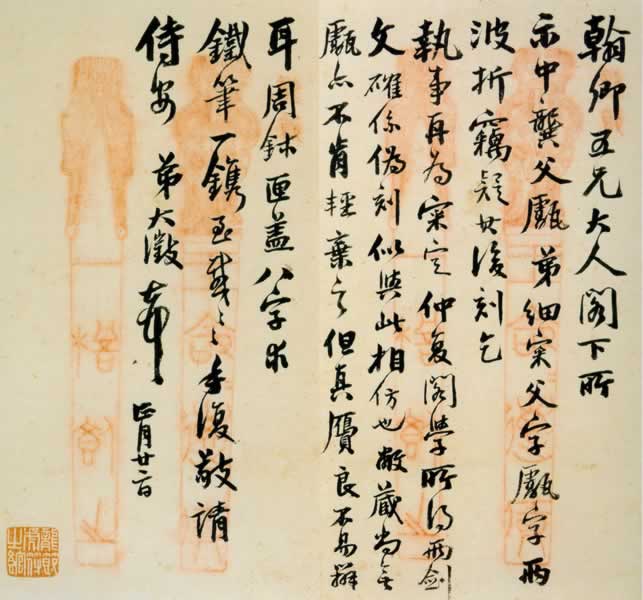 翰卿五兄大人閣下所
示中龔父甗弟細宷父字甗字兩
波折竊疑其後刻乞
執事再為宷定仲复閣學所得兩劍
文確係偽刻似與此相仿也敝藏尚無
甗亦不肯輕棄之但真贋良不易辨
耳周鉢匣蓋八字求
鐵筆一鐫至感〻手復敬請
侍安 弟大澂頓首 正月廿二日
龍節虎符之館